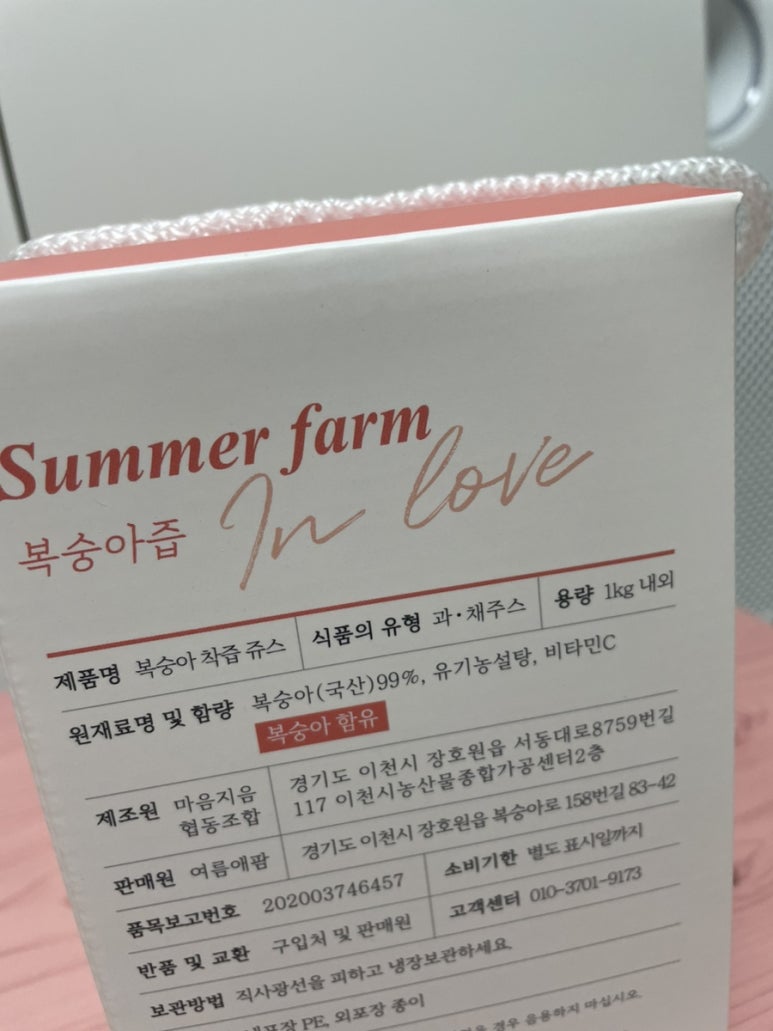 Summer farm
In love
복숭아즙
제품명 복숭아 착즙 쥬스 식품의 유형 과·채주스 용량 1kg 내외
원재료명 및 함량 복숭아(국산)99%, 유기농설탕, 비타민C
복숭아 함유
제조원 마음지음 협동조합 경기도 이천시 장호원읍 서동대로8759번길
117 이천시농산물종합가공센터2층
판매원 여름애팜 경기도 이천시 장호원읍 복숭아로 158번길 83-42
품목보고번호 202003746457 소비기한 별도 표시일까지
반품 및 교환 구입처 및 판매원 고객센터 010-3701-9173
보관방법 직사광선을 피하고 냉장보관하세요.
PE, 외포장 종이
경우 음용하지 마십시오.